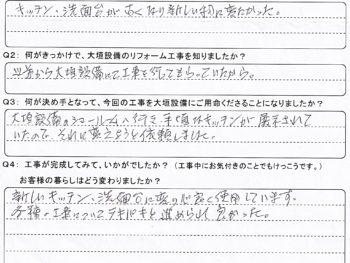 キッチン、洗面台が古くなり新しい物に変えたかった。
Q2：何がきっかけで、大垣設備のリフォーム工事を知りましたか？
以前から大垣設備にて工事をしてもらっていたから。
Q3：何が決め手となって、今回の工事を大垣設備にご用命くださることになりましたか？
大垣設備のショールームへ行き、手頃なキッチンが展示されて
いたので、それに変えようと依頼しました。
Q4：工事が完成してみて、いかがでしたか？（工事中にお気付きのことでもけっこうです。）
お客様の暮らしはどう変わりましたか？
新しいキッチン、洗面台に変り心良く使用しています。
各種の工事についてテキパキと進められ良かった。